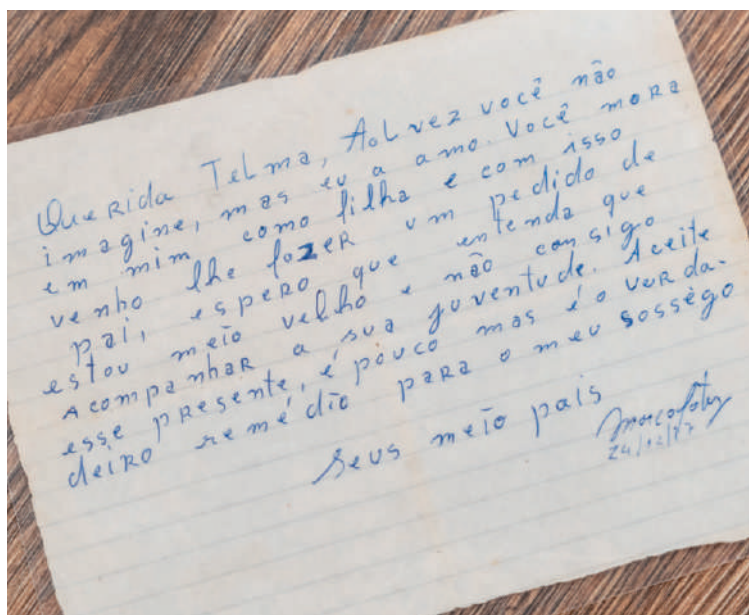 Querida Telma, Aolvez você não
imagine, mas eu a amo. Você mora
em mim como filha e com isso
venho lhe fozer um pedido de
pai, espero que entenda que
estou meio velho e não consigo
acompanhar a sua juventude. Aceite
esse presente, é pouco mas é o verda-
deiro remédio para o meu sossêgo
seus meio pais
24/12/77